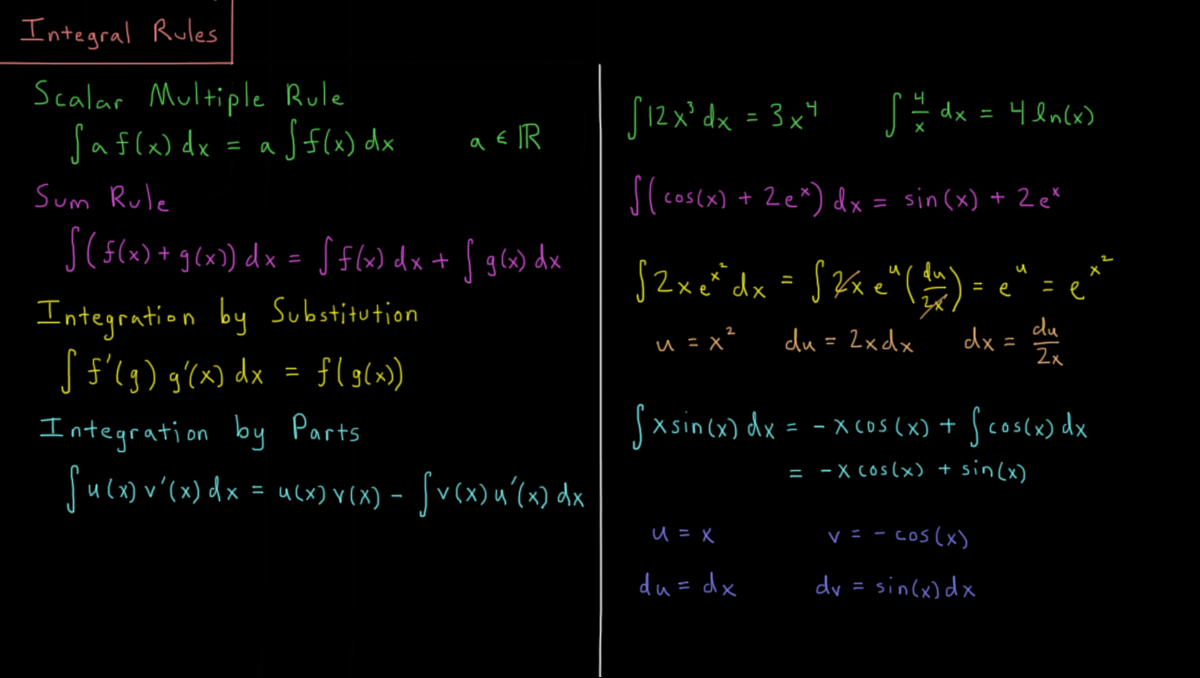 Integral Rules
Scalar Multiple Rule
∫ a f(x) dx = a ∫ f(x) dx    a ∈ ℝ
Sum Rule
∫ (f(x) + g(x)) dx = ∫ f(x) dx + ∫ g(x) dx
Integration by Substitution
∫ f'(g) g'(x) dx = f(g(x))
Integration by Parts
∫ u(x) v'(x) dx = u(x) v(x) - ∫ v(x) u'(x) dx
∫ 12x³ dx = 3x⁴    ∫ 4/x dx = 4 ln(x)
∫ (cos(x) + 2eˣ) dx = sin(x) + 2eˣ
∫ 2x e^x² dx = ∫ 2x e^u (du/2x) = e^u = e^x²
u = x²    du = 2x dx    dx = du/2x
∫ x sin(x) dx = - x cos(x) + ∫ cos(x) dx
= - x cos(x) + sin(x)
u = x    v = - cos(x)
du = dx    dv = sin(x) dx